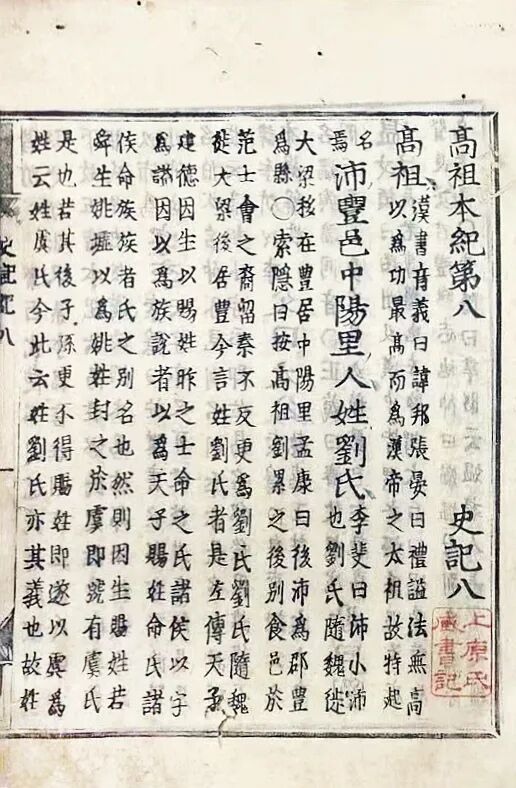 高祖本紀第八 史記八
上原氏
藏書記
高祖
漢書音義曰諱邦張晏曰禮謚法無高
以爲功最高而爲漢帝之太祖故特起
名
焉
沛豐邑中陽里人姓劉氏
李斐曰沛小沛
也劉氏隨魏徙
大梁移在豊居中陽里孟康曰後沛爲郡豊
爲縣〇索隱曰按高祖劉累之後別食邑於
范士會之裔留秦不反更爲劉氏劉氏隨魏
徙大梁後居豊今言姓劉氏者是左傳天子
建德因生以賜姓胙之士命之氏諸侯以字
爲謚因以爲族說者以爲天子賜姓命氏諸
侯命族族者氏之別名也然則因生賜姓若
舜生姚墟以爲姚姓封之於虞即號有虞氏
是也若其後子孫更不得賜姓即遂以虞爲
姓云姓虞氏今此云姓劉氏亦其義也故姓
史記紀八